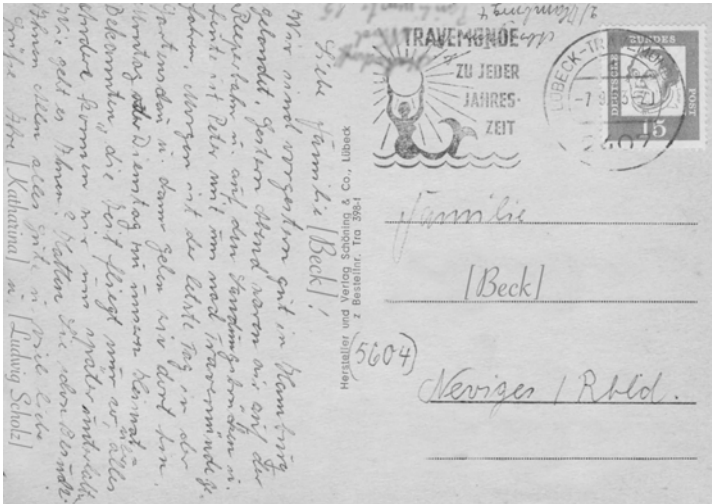 2/Hamburg 4
TRAVEMÜNDE
ZU JEDER
JAHRES-
ZEIT
LÜBECK-TRAVEMÜNDE
-7.9.63
2407
DEUTSCHE BUNDESPOST
15
Familie
[Beck]
(5604)
Neviges / Rhld.
Hersteller und Verlag Schöning & Co., Lübeck
z Bestellnr. Tra 398-I
Liebe Familie [Beck],
Wir sind vorgestern gut in Hamburg
gelandet. Gestern Abend waren wir auf der
Reeperbahn u. auf den Landungsbrücken u.
heute ist Peter mit uns nach Travemünde ge-
fahren. Morgen ist der letzte Tag in der
Gartenschau u. dann gehen wir dort hin.
Montag oder Dienstag zu unseren Heimat
Bekannten, die Zeit fliegt nur so, alles
andere können wir uns später unterhalten
Wie geht es Ihnen? Hatten Sie schon Besuch?
Ihnen allen alles gute u. viel liebe
Grüße Ihre [Katharina] u. [Ludwig Scholz]